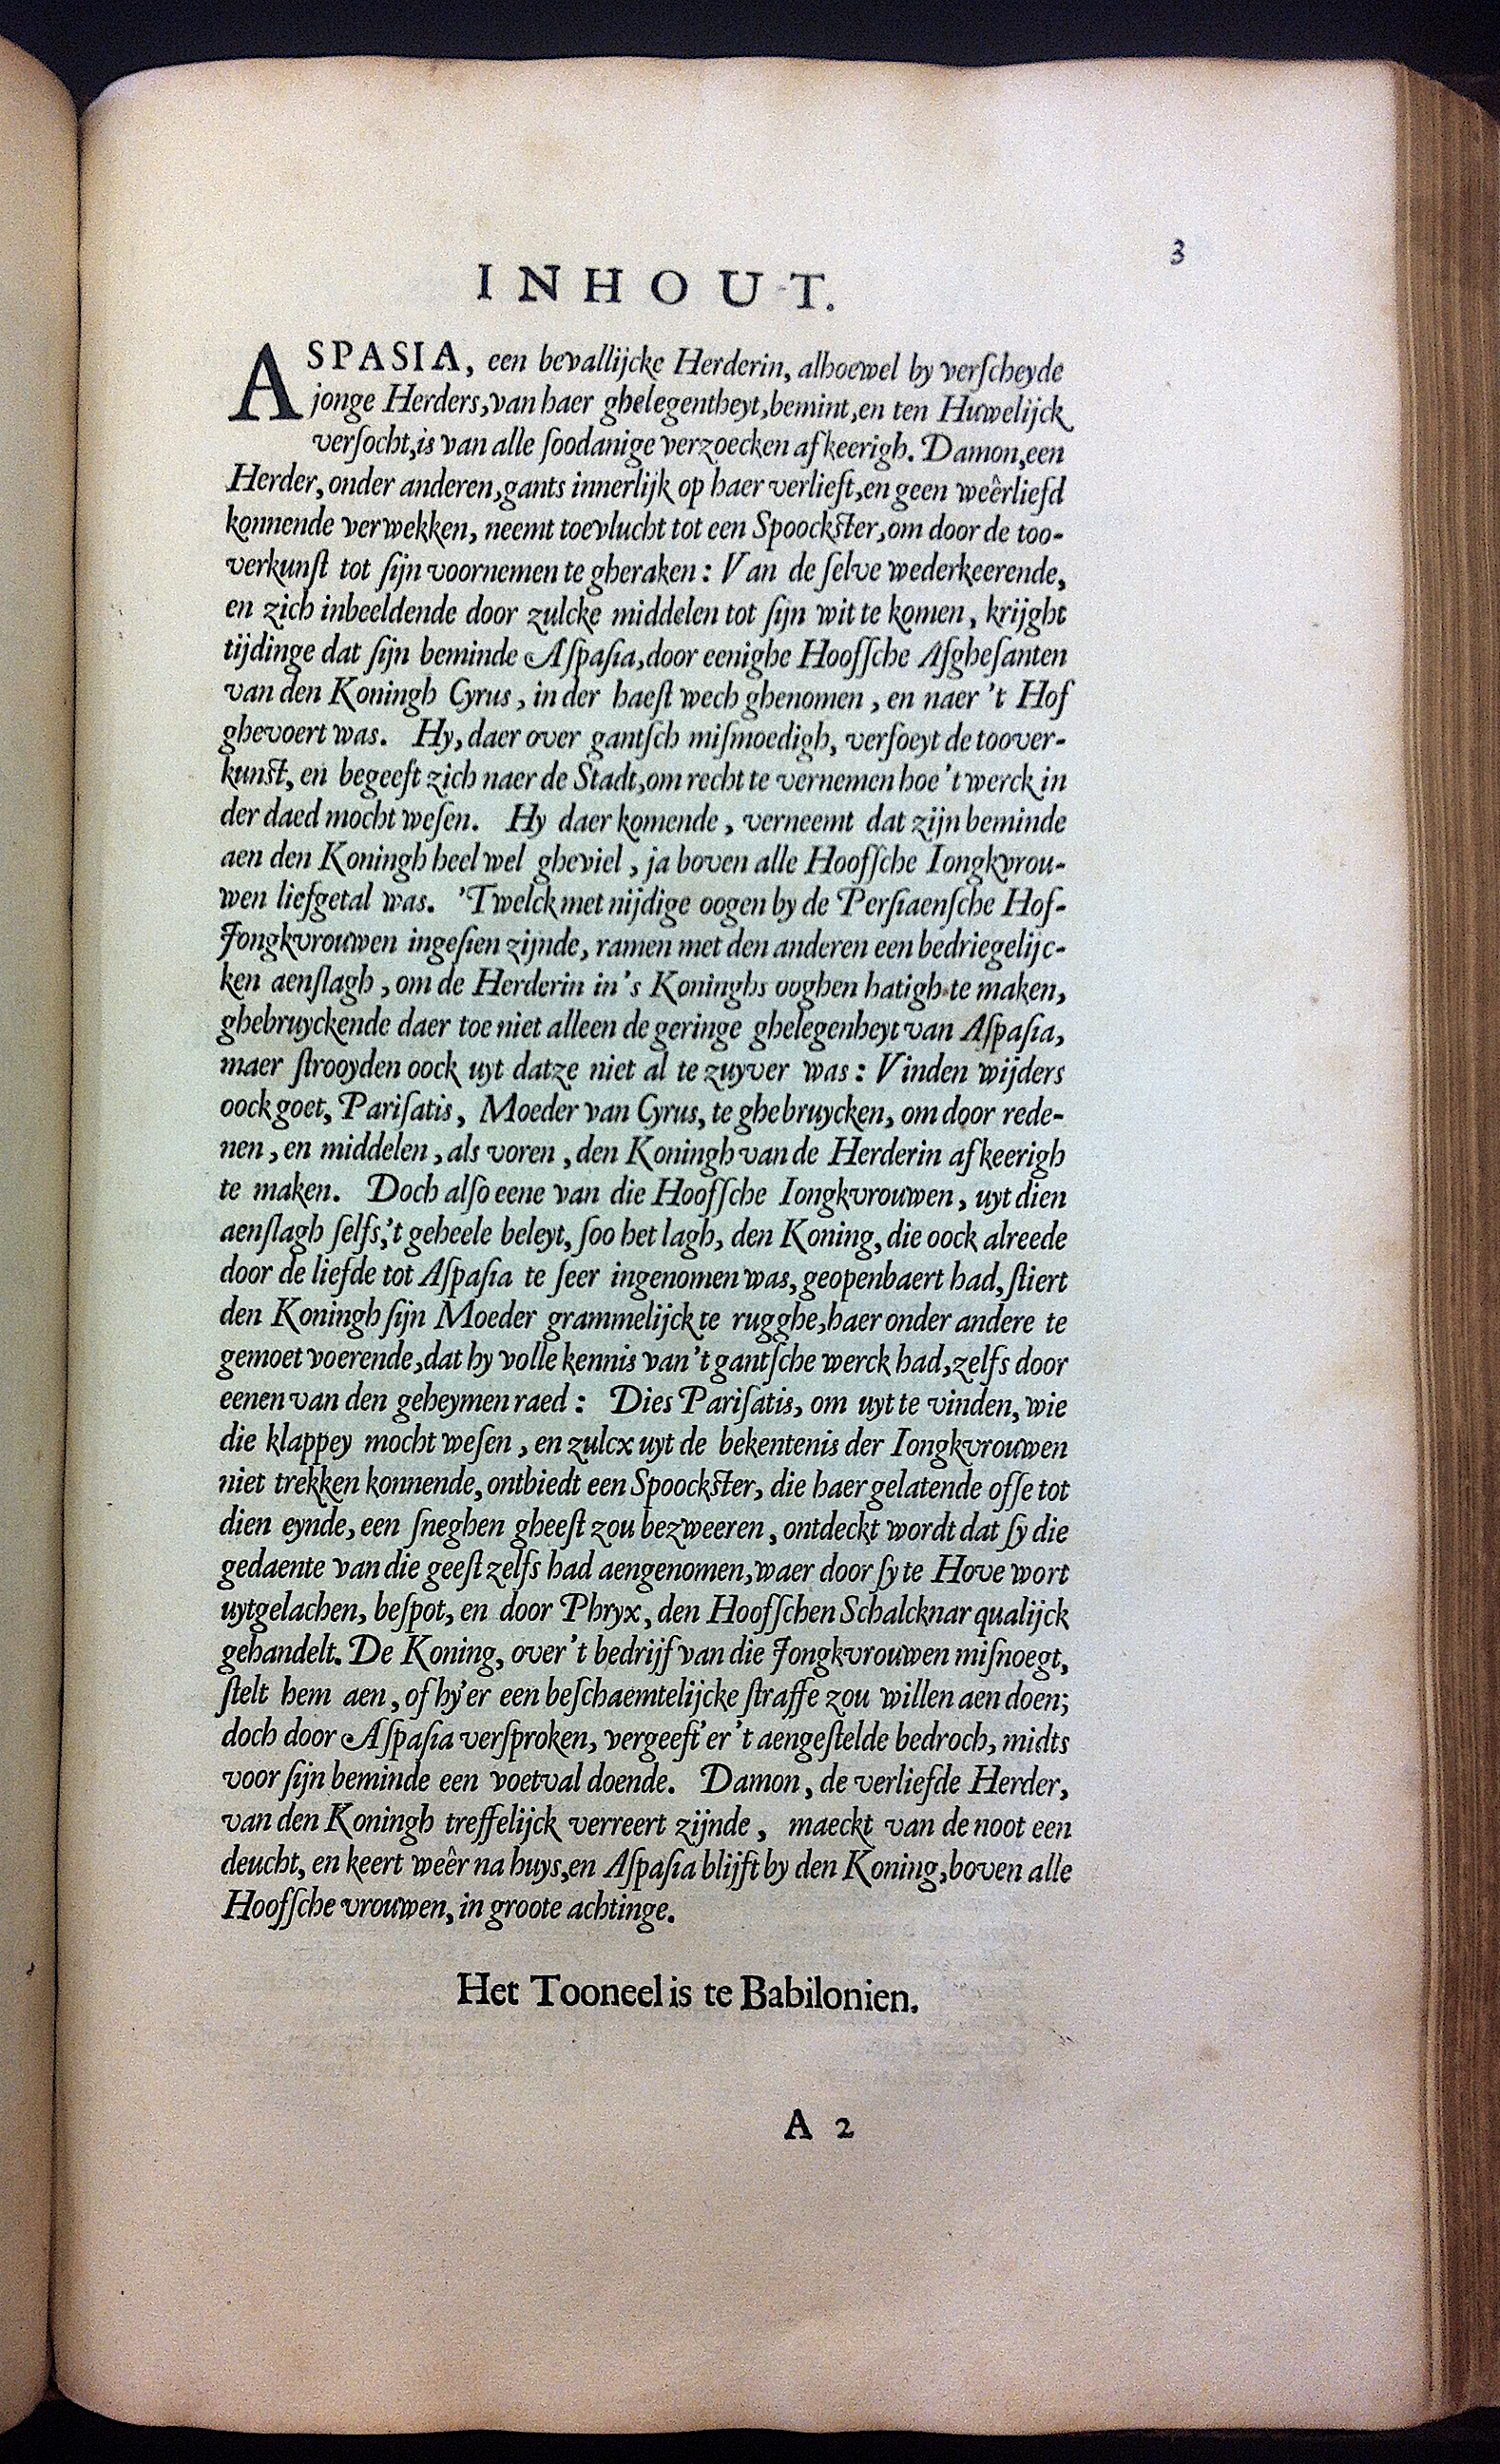 3
INHOUT.
ASPASIA, een bevallijcke Herderin, alhoewel by verſcheyde
jonge Herders, van haer ghelegentheyt, bemint, en ten Huwelijck
verſocht, is van alle ſoodanige verzoecken afkeerigh. Damon, een
Herder, onder anderen, gants innerlijk op haer verlieft, en geen weêrliefd
konnende verwekken, neemt toevlucht tot een Spoockſter, om door de too-
verkunſt tot ſijn voornemen te gheraken: Van de ſelve wederkeerende,
en zich inbeeldende door zulcke middelen tot ſijn wit te komen, krijght
tijdinge dat ſijn beminde Aſpaſia, door eenighe Hoofſche Afgheſanten
van den Koningh Cyrus, in der haeſt wech ghenomen, en naer 't Hof
ghevoert was. Hy, daer over gantſch miſmoedigh, verfoeyt de toover-
kunſt, en begeeft zich naer de Stadt, om recht te vernemen hoe 't werck in
der daed mocht weſen. Hy daer komende, verneemt dat zijn beminde
aen den Koningh heel wel gheviel, ja boven alle Hoofſche Iongkvrou-
wen liefgetal was. 'Twelck met nijdige oogen by de Perſiaenſche Hof-
Jongkvrouwen ingeſien zijnde, ramen met den anderen een bedriegelijc-
ken aenſlagh, om de Herderin in 's Koninghs ooghen hatigh te maken,
ghebruyckende daer toe niet alleen de geringe ghelegenheyt van Aſpaſia,
maer ſtrooyden oock uyt datze niet al te zuyver was: Vinden wijders
oock goet, Pariſatis, Moeder van Cyrus, te ghebruycken, om door rede-
nen, en middelen, als voren, den Koningh van de Herderin afkeerigh
te maken. Doch alſo eene van die Hoofſche Iongkvrouwen, uyt dien
aenſlagh ſelfs, 't geheele beleyt, ſoo het lagh, den Koning, die oock alreede
door de liefde tot Aſpaſia te ſeer ingenomen was, geopenbaert had, ſtiert
den Koningh ſijn Moeder grammelijck te rugghe, haer onder andere te
gemoet voerende, dat hy volle kennis van 't gantſche werck had, zelfs door
eenen van den geheymen raed: Dies Pariſatis, om uyt te vinden, wie
die klappey mocht weſen, en zulcx uyt de bekentenis der Iongkvrouwen
niet trekken konnende, ontbiedt een Spoockſter, die haer gelatende ofſe tot
dien eynde, een ſneghen gheeſt zou bezweeren, ontdeckt wordt dat ſy die
gedaente van die geeſt zelfs had aengenomen, waer door ſy te Hove wort
uytgelachen, beſpot, en door Phryx, den Hoofſchen Schalcknar qualijck
gehandelt. De Koning, over 't bedrijf van die Jongkvrouwen miſnoegt,
ſtelt hem aen, of hy'er een beſchaemtelijcke ſtraffe zou willen aen doen;
doch door Aſpaſia verſproken, vergeeft'er 't aengeſtelde bedroch, midts
voor ſijn beminde een voetval doende. Damon, de verliefde Herder,
van den Koningh treffelijck verreert zijnde, maeckt van de noot een
deucht, en keert weêr na huys, en Aſpaſia blijft by den Koning, boven alle
Hoofſche vrouwen, in groote achtinge.
Het Tooneel is te Babilonien.
A 2